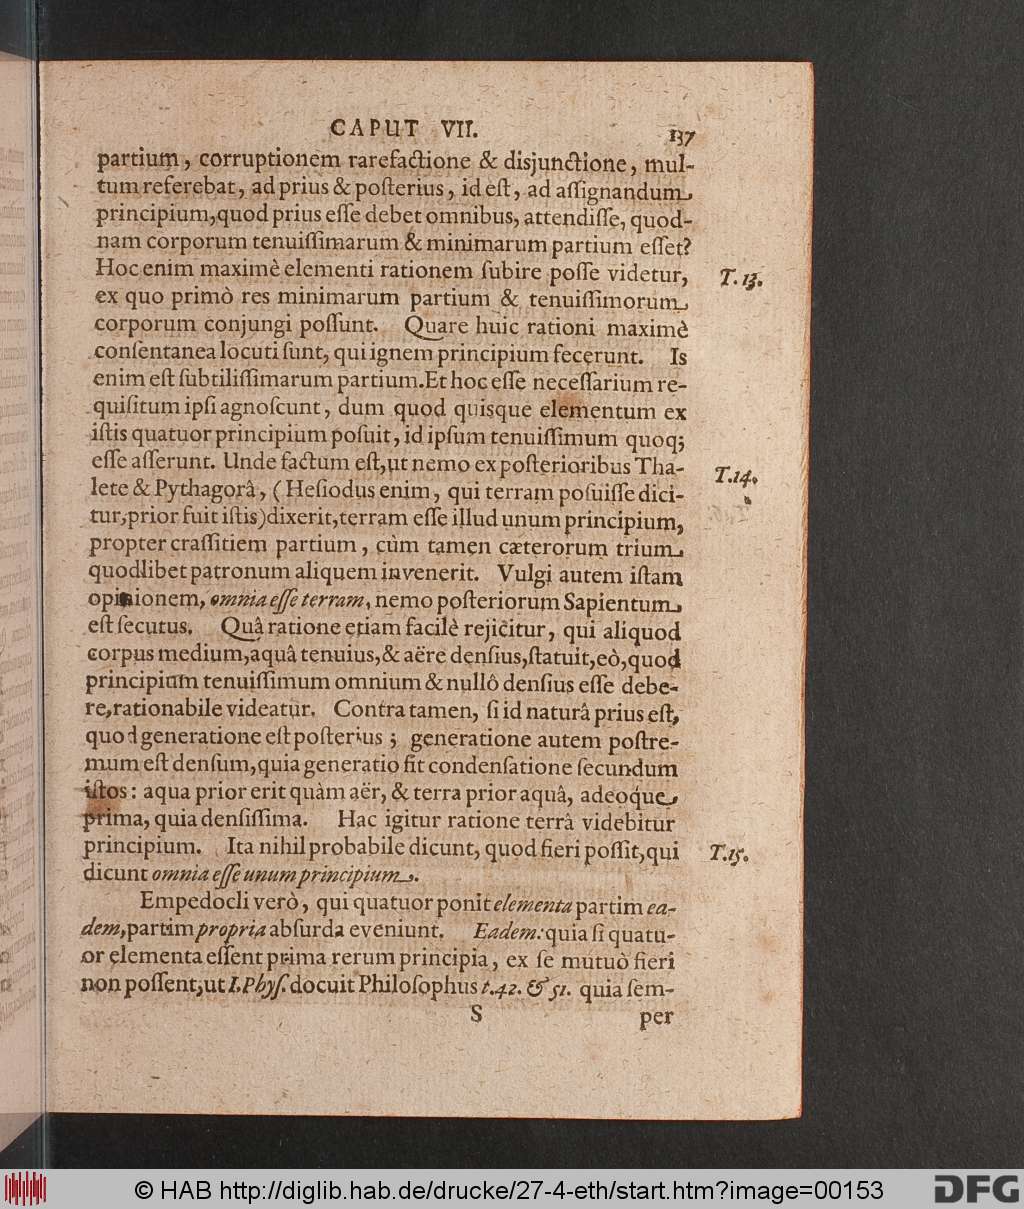 CAPUT VII. 137
partium, corruptionem rarefactione & disjunctione, mul-
tum referebat, ad prius & poſterius, id eſt, ad aſſignandum
principium, quod prius eſſe debet omnibus, attendiſſe, quod-
nam corporum tenuiſſimarum & minimarum partium eſſet?
Hoc enim maximè elementi rationem ſubire poſſe videtur, T. 13.
ex quo primò res minimarum partium & tenuiſſimorum
corporum conjungi poſſunt. Quare huic rationi maximè
conſentanea locuti ſunt, qui ignem principium fecerunt. Is
enim eſt ſubtiliſſimarum partium. Et hoc eſſe neceſſarium re-
quiſitum ipſi agnoſcunt, dum quod quisque elementum ex
iſtis quatuor principium poſuit, id ipſum tenuiſſimum quoq;
eſſe aſſerunt. Unde factum eſt, ut nemo ex poſterioribus Tha- T. 14.
lete & Pythagorâ, (Heſiodus enim, qui terram poſuiſſe dici-
tur, prior fuit iſtis) dixerit, terram eſſe illud unum principium,
propter craſſitiem partium, cùm tamen cæterorum trium
quodlibet patronum aliquem invenerit. Vulgi autem iſtam
opinionem, omnia eſſe terram, nemo poſteriorum Sapientum
eſt ſecutus. Quâ ratione etiam facilè rejicitur, qui aliquod
corpus medium, aquâ tenuius, & aëre denſius, ſtatuit, eò, quod
principium tenuiſſimum omnium & nullô denſius eſſe debe-
re, rationabile videatur. Contra tamen, ſi id naturâ prius eſt,
quod generatione eſt poſterius; generatione autem poſtre-
mum eſt denſum, quia generatio fit condenſatione ſecundum
iſtos: aqua prior erit quàm aër, & terra prior aquâ, adeoque
prima, quia denſiſſima. Hac igitur ratione terrâ videbitur
principium. Ita nihil probabile dicunt, quod fieri poſſit, qui T. 15.
dicunt omnia eſſe unum principium.
Empedocli verò, qui quatuor ponit elementa partim ea-
dem, partim propria abſurda eveniunt. Eadem: quia ſi quatu-
or elementa eſſent prima rerum principia, ex ſe mutuò fieri
non poſſent, ut I. Phyſ. docuit Philoſophus t. 42. & 51. quia ſem-
S per
© HAB http://diglib.hab.de/drucke/27-4-eth/start.htm?image=00153 DFG